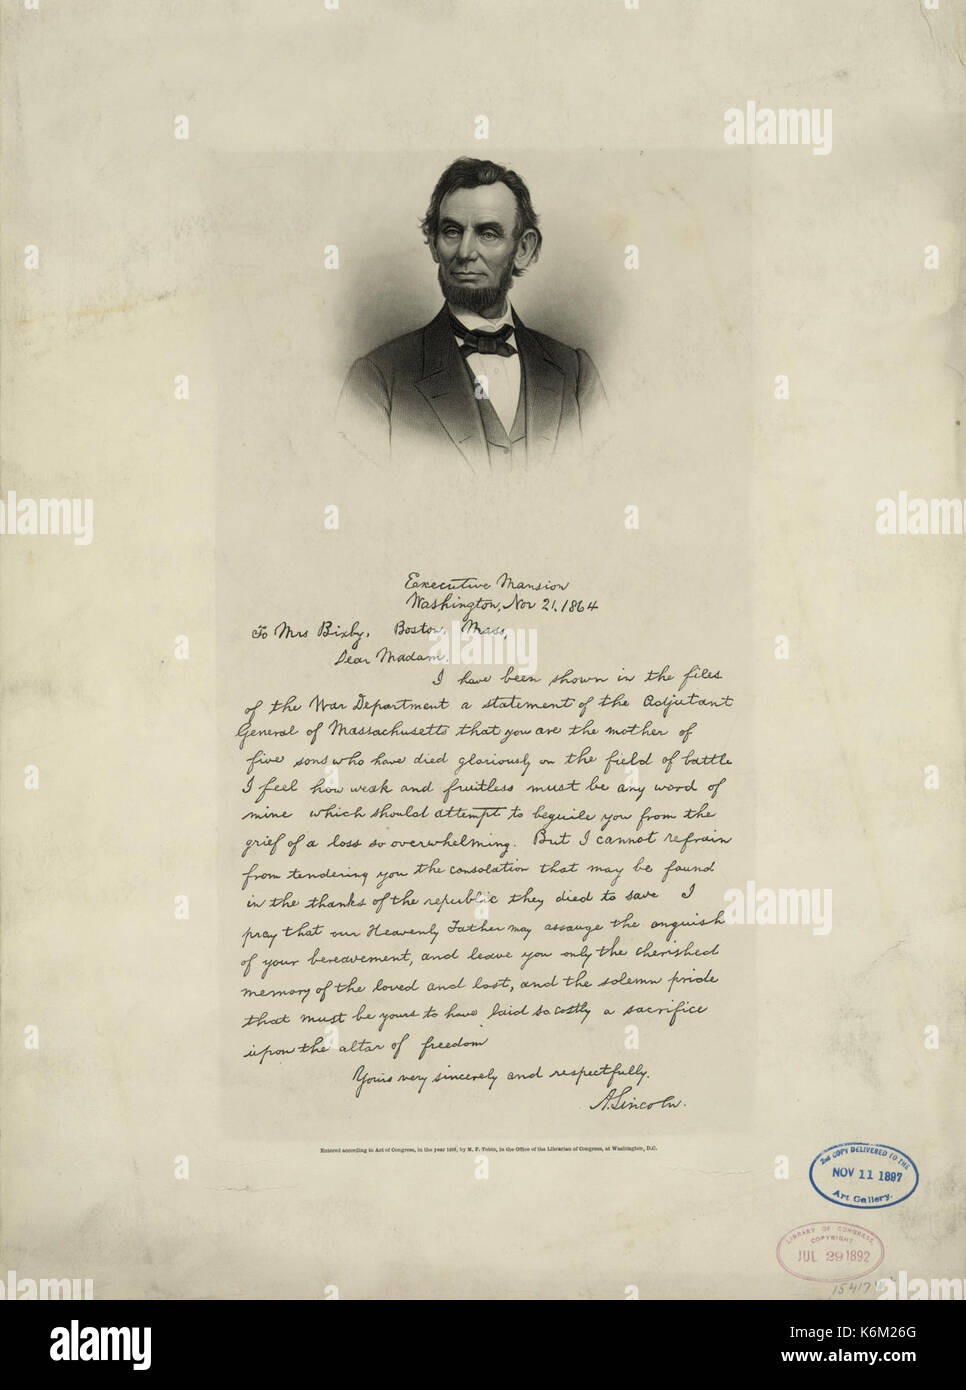 Executive Mansion
Washington, Nov 21, 1864
To Mrs Bixby, Boston, Mass,
Dear Madam.
I have been shown in the files
of the War Department a statement of the Adjutant
General of Massachusetts that you are the mother of
five sons who have died gloriously on the field of battle
I feel how weak and fruitless must be any word of
mine which should attempt to beguile you from the
grief of a loss so overwhelming. But I cannot refrain
from tendering you the consolation that may be found
in the thanks of the republic they died to save I
pray that our Heavenly Father may assauge the anguish
of your bereavement, and leave you only the cherished
memory of the loved and lost, and the solemn pride
that must be yours to have laid so costly a sacrifice
upon the altar of freedom
Yours very sincerely and respectfully.
A. Lincoln.
Entered according to Act of Congress, in the year by M. F. Tobin, in the Office of the Librarian of Congress, at Washington, D.C.
2nd COPY DELIVERED TO THE
NOV 11 1897
Art Gallery.
LIBRARY OF CONGRESS,
COPYRIGHT
JUL 29 1892
a alamy
alamy
Image ID: K6M26G
www.alamy.com